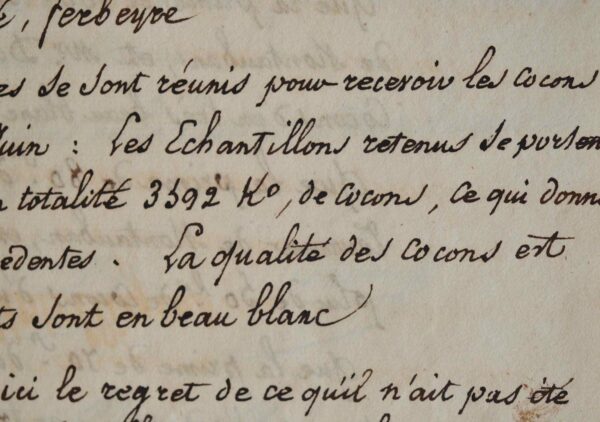 , ferbeyre
es se sont réunis pour recevoir les cocons
Juin : Les Echantillons retenus se porten
totalité 3592 Ko, de cocons, ce qui donn
édentes . La qualité des cocons est
ts sont en beau blanc
ici le regret de ce qu'il n'ait pas été